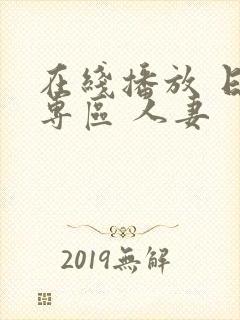 在綫播放 日
專區 人妻
2019無解